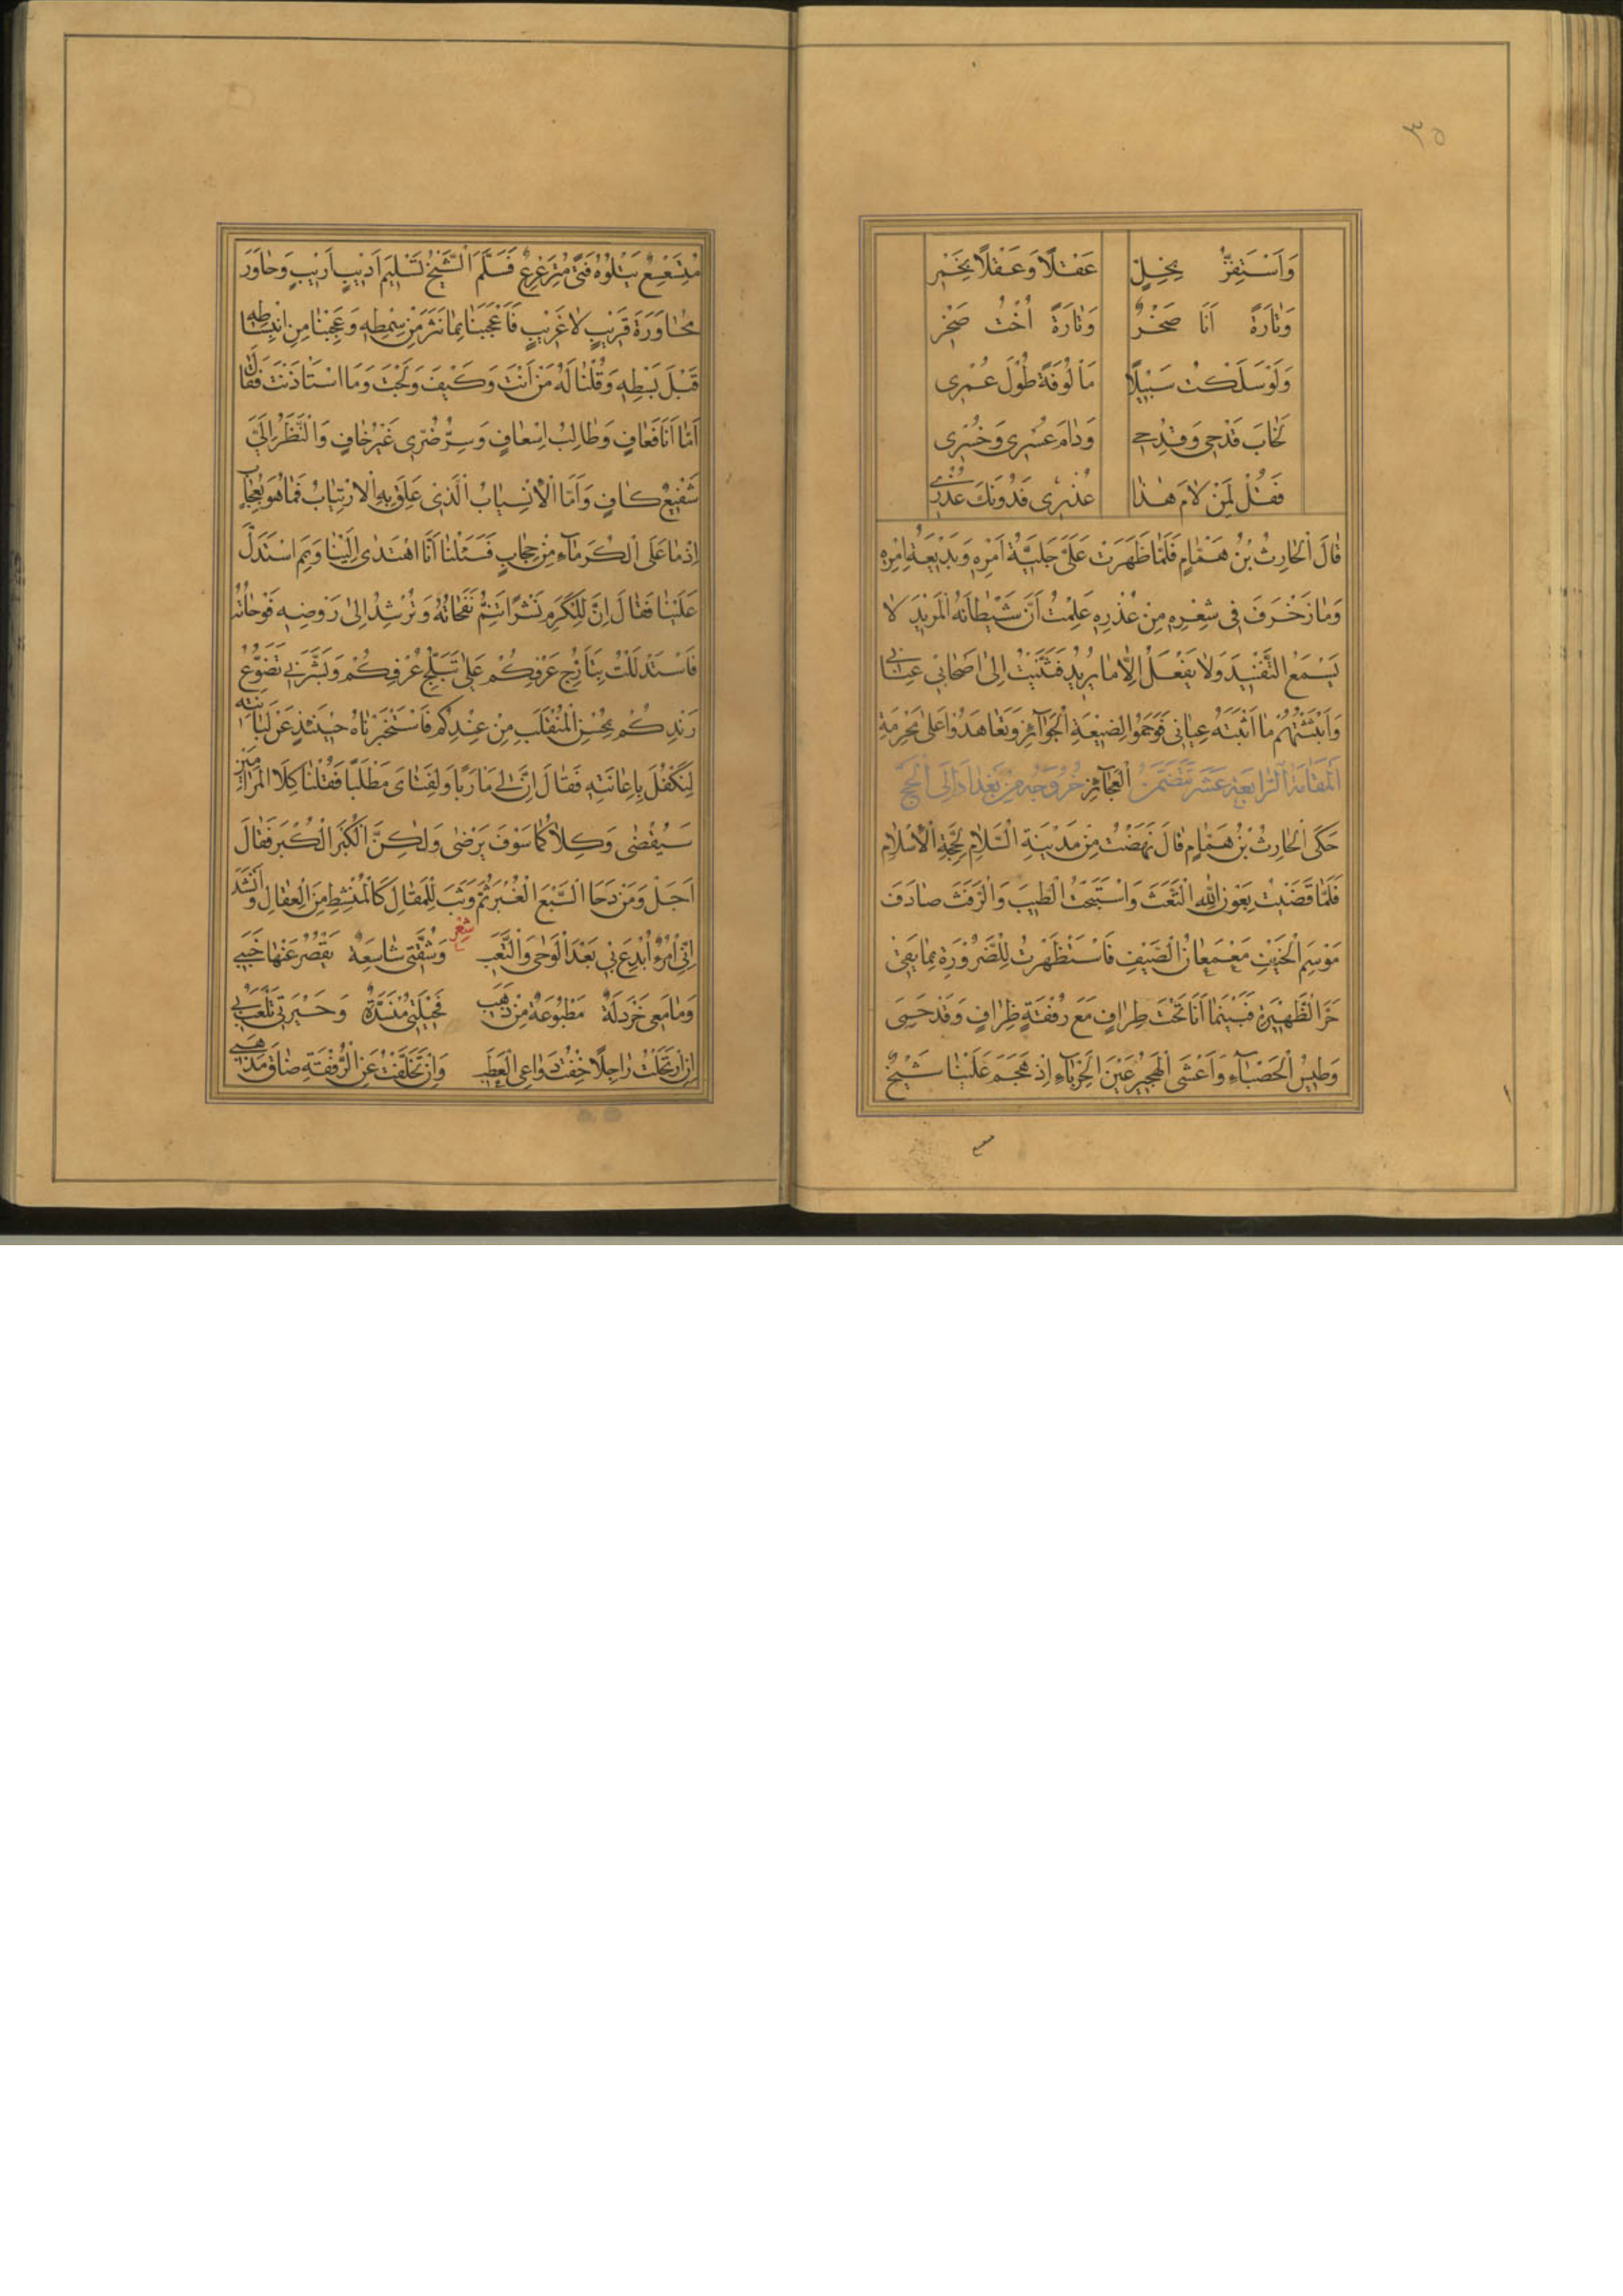 ٣٥
وَاَسْتَفِزُّ بِخِلٍّ عَقْلًا وَعَقْلًا بِخَمْرِ
وَتَارَةً اَنَا صَخْرٌ وَتَارَةً اُخْتُ صَخْرِ
وَلَوْ سَلَكْتُ سَبِيْلًا مَاْلُوْفَةً طُوْلَ عُمْرِى
لَخَابَ قَدْحِى وَقِدْحِى وَدَامَ عُسْرِى وَخُسْرِى
فَقُلْ لِمَنْ لَامَ هٰذَا عُذْرِى فَدُوْنَكَ عُذْرِى
قَالَ الْحَارِثُ بْنُ هَمَّامٍ فَلَمَّا ظَهَرَتْ عَلَىَّ جَلِيَّةُ اَمْرِهِ وَبَدِيْعَةُ اِمْرِهِ
وَمَا زَخْرَفَ فِى شِعْرِهِ مِنْ عُذْرِهِ عَلِمْتُ اَنَّ شَيْطَانَهُ الْمَرِيْدَ لَا
يَسْمَعُ التَّفْنِيْدَ وَلَا يَفْعَلُ اِلَّا مَا يُرِيْدُ فَثَنَيْتُ اِلٰى اَصْحَابِى عِنَانِى
وَاَبْثَثْتُهُمْ مَا اَثْبَتَهُ عِيَانِى فَوَجَمُوْا لِضَيْعَةِ الْجَوَآئِزِ وَتَعَاهَدُوْا عَلٰى مَحْرَمَةِ
الْعَجَآئِزِ اَلْمَقَامَةُ الرَّابِعَةَ عَشَرَ تَتَضَمَّنُ خُرُوْجَهُ مِنْ بَغْدَادَ اِلَى الْحَجِّ
حَكَى الْحَارِثُ بْنُ هَمَّامٍ قَالَ نَهَضْتُ مِنْ مَدِيْنَةِ السَّلَامِ لِحَجَّةِ الْاِسْلَامِ
فَلَمَّا قَضَيْتُ بِعَوْنِ اللهِ التَّفَثَ وَاسْتَبَحْتُ الطِّيْبَ وَالرَّفَثَ صَادَفَ
مَوْسِمُ الْخَيْفِ مَعْمَعَانَ الصَّيْفِ فَاسْتَظْهَرْتُ لِلضَّرُوْرَةِ بِمَا يَقِى
حَرَّ الظَّهِيْرَةِ فَبَيْنَمَا اَنَا تَحْتَ طِرَافٍ مَعَ رُفْقَةٍ ظِرَافٍ وَقَدْ حَمِىَ
وَطِيْسُ الْحَصْبَآءِ وَاَعْشَى الْهَجِيْرُ عَيْنَ الْحِرْبَآءِ اِذْ هَجَمَ عَلَيْنَا شَيْخٌ
مُتَسَعْسِعٌ يَتْلُوْهُ فَتًى مُتَرَعْرِعٌ فَسَلَّمَ الشَّيْخُ تَسْلِيْمَ اَدِيْبٍ اَرِيْبٍ وَحَاوَرَ
مُحَاوَرَةَ قَرِيْبٍ لَا غَرِيْبٍ فَاَعْجَبَنَا بِمَا نَثَرَ مِنْ سِمْطِهِ وَعَجِبْنَا مِنِ انْبِسَاطِهِ
قَبْلَ بَسْطِهِ وَقُلْنَا لَهُ مَنْ اَنْتَ وَكَيْفَ وَلَجْتَ وَمَا اسْتَاْذَنْتَ فَقَالَ
اَمَّا اَنَا فَعَافٍ وَطَالِبُ اِسْعَافٍ وَسِرُّ ضُرِّى غَيْرُ خَافٍ وَالنَّظَرُ اِلَىَّ
شَفِيْعٌ كَافٍ وَاَمَّا الْاِنْسِيَابُ الَّذِى عَلِقَ بِهِ الْاِرْتِيَابُ فَمَا هُوَ بِعُجَابٍ
اِذْ مَا عَلَى الْكُرَمَآءِ مِنْ حِجَابٍ فَسَئَلْنَا اَنَّى اهْتَدٰى اِلَيْنَا وَبِمَ اسْتَدَلَّ
عَلَيْنَا فَقَالَ اِنَّ لِلْكَرَمِ نَشْرًا تَنِمُّ نَفَحَاتُهُ وَتُرْشِدُ اِلٰى رَوْضِهِ فَوْحَاتُهُ
فَاسْتَدْلَلْتُ بِتَاَرُّجِ عَرْفِكُمْ عَلٰى تَبَلُّجِ عُرْفِكُمْ وَبَشَّرَنِى تَضَوُّعُ
رَنْدِكُمْ بِحُسْنِ الْمُنْقَلَبِ مِنْ عِنْدِكُمْ فَاسْتَخْبَرْنَاهُ حِيْنَئِذٍ عَنْ لُبَانَتِهِ
لِنَكْفُلَ بِاِعَانَتِهِ فَقَالَ اِنَّ لِى مَارَبًا وَلِفَتَاىَ مَطْلَبًا فَقُلْنَا كِلَا الْمَرَامَيْنِ
سَيُقْضٰى وَكِلَاكُمَا سَوْفَ يَرْضٰى وَلٰكِنَّ الْكُبْرَ الْكُبْرَ فَقَالَ
اَجَلْ وَمَنْ دَحَا السَّبْعَ الْغُبْرَ ثُمَّ وَثَبَ لِلْمَقَالِ كَالْمُنْشَطِ مِنَ الْعِقَالِ وَاَنْشَدَ
شعر
اِنِّى امْرُؤٌ اُبْدِعَ بِى بَعْدَ الْوَجٰى وَالتَّعَبِ وَشُقَّتِى شَاسِعَةٌ يَقْصُرُ عَنْهَا خَبَبِى
وَمَا مَعِى خَرْدَلَةٌ مَطْبُوْعَةٌ مِنْ ذَهَبِ فَحِيْلَتِى مُنْسَدَّةٌ وَحَيْرَتِى تَلْعَبُ بِى
اِنِ ارْتَحَلْتُ رَاجِلًا خِفْتُ دَوَاعِى الْعَطَبِ وَاِنْ تَخَلَّفْتُ عَنِ الرُّفْقَةِ ضَاقَ مَذْهَبِى